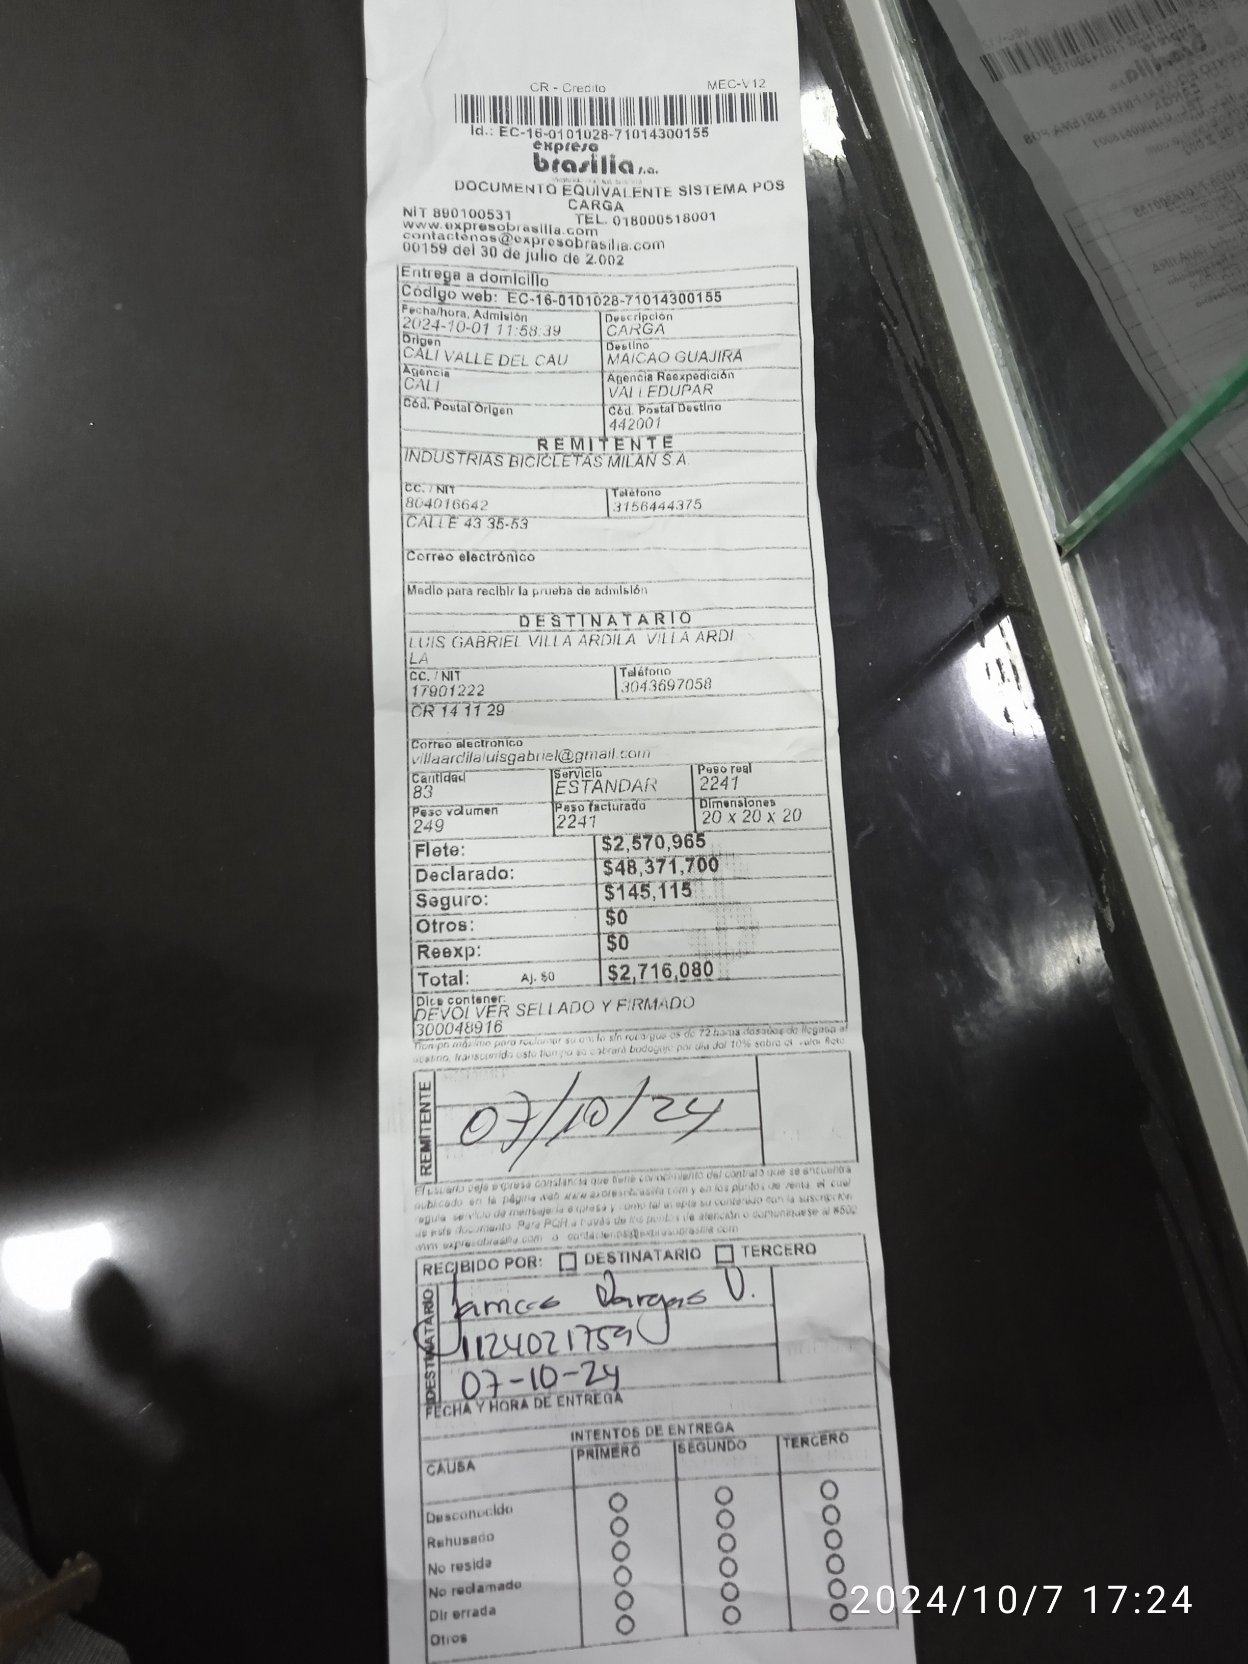 CR - Credito MEC-V12
Id.: EC-16-0101028-71014300155
expreso
brasilia s.a.
DOCUMENTO EQUIVALENTE SISTEMA POS
CARGA
NIT 890100531 TEL. 018000518001
www.expresobrasilia.com
contactenos@expresobrasilia.com
00159 del 30 de julio de 2.002
Entrega a domicilio
Código web: EC-16-0101028-71014300155
Fecha/hora, Admisión Descripción
2024-10-01 11:58:39 CARGA
Origen Destino
CALI VALLE DEL CAU MAICAO GUAJIRA
Agencia Agencia Reexpedición
CALI VALLEDUPAR
Cód. Postal Origen Cód. Postal Destino
442001
REMITENTE
INDUSTRIAS BICICLETAS MILAN S.A.
CC. / NIT Teléfono
804016642 3156444375
CALLE 43 35-53
Correo electrónico
Medio para recibir la prueba de admisión
DESTINATARIO
LUIS GABRIEL VILLA ARDILA VILLA ARDI
LA
CC. / NIT Teléfono
17901222 3043697058
CR 14 11 29
Correo electronico
villaardilaluisgabriel@gmail.com
Cantidad Servicio Peso real
83 ESTANDAR 2241
Peso volumen Peso facturado Dimensiones
249 2241 20 x 20 x 20
Flete: $2,570,965
Declarado: $48,371,700
Seguro: $145,115
Otros: $0
Reexp: $0
Total: Aj. $0 $2,716,080
Dice contener:
DEVOLVER SELLADO Y FIRMADO
300048916
Tiempo máximo para reclamar su envío sin recargue es de 72 horas después de llegada al
destino, transcurrido este tiempo se cobrará bodegaje por día del 10% sobre el valor flete
REMITENTE
07/10/24
El usuario deja expresa constancia que tiene conocimiento del contrato que se encuentra
publicado en la página web www.expresobrasilia.com y en los puntos de venta, el cual
regula servicio de mensajería expresa y como tal acepta su contenido con la suscripción
de este documento. Para PQR a través de los puntos de atención o comuníquese al #502
www.expresobrasilia.com o contactenos@expresobrasilia.com
RECIBIDO POR: DESTINATARIO TERCERO
DESTINATARIO
Vargas V.
1124021759
07-10-24
FECHA Y HORA DE ENTREGA
INTENTOS DE ENTREGA
CAUSA PRIMERO SEGUNDO TERCERO
Desconocido
Rehusado
No reside
No reclamado
Dir errada
Otros
2024/10/7 17:24